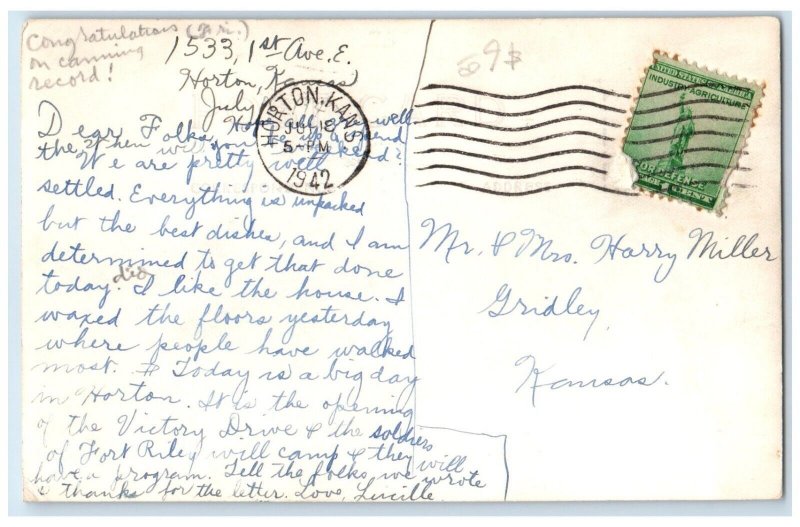 Congratulations (Fri.)
on canning
record!
1533, 1st Ave. E.
Horton, Kansas
July
Dear Folks,
When will you be up
the weekend?
We are pretty well
settled. Everything is unpacked
but the best dishes, and I am
determined to get that done
today. did I like the house. I
waxed the floors yesterday
where people have walked
most. Today is a big day
in Horton. It is the opening
of the Victory Drive & the soldiers
of Fort Riley will camp & they will
have a program. Tell the folks we wrote
& thanks for the letter. Love, Lucille.
HORTON, KANS.
JUL 18
5-PM
1942
9$
UNITED STATES OF AMERICA
INDUSTRY AGRICULTURE
FOR DEFENSE
Mr. & Mrs. Harry Miller
Gridley,
Kansas.